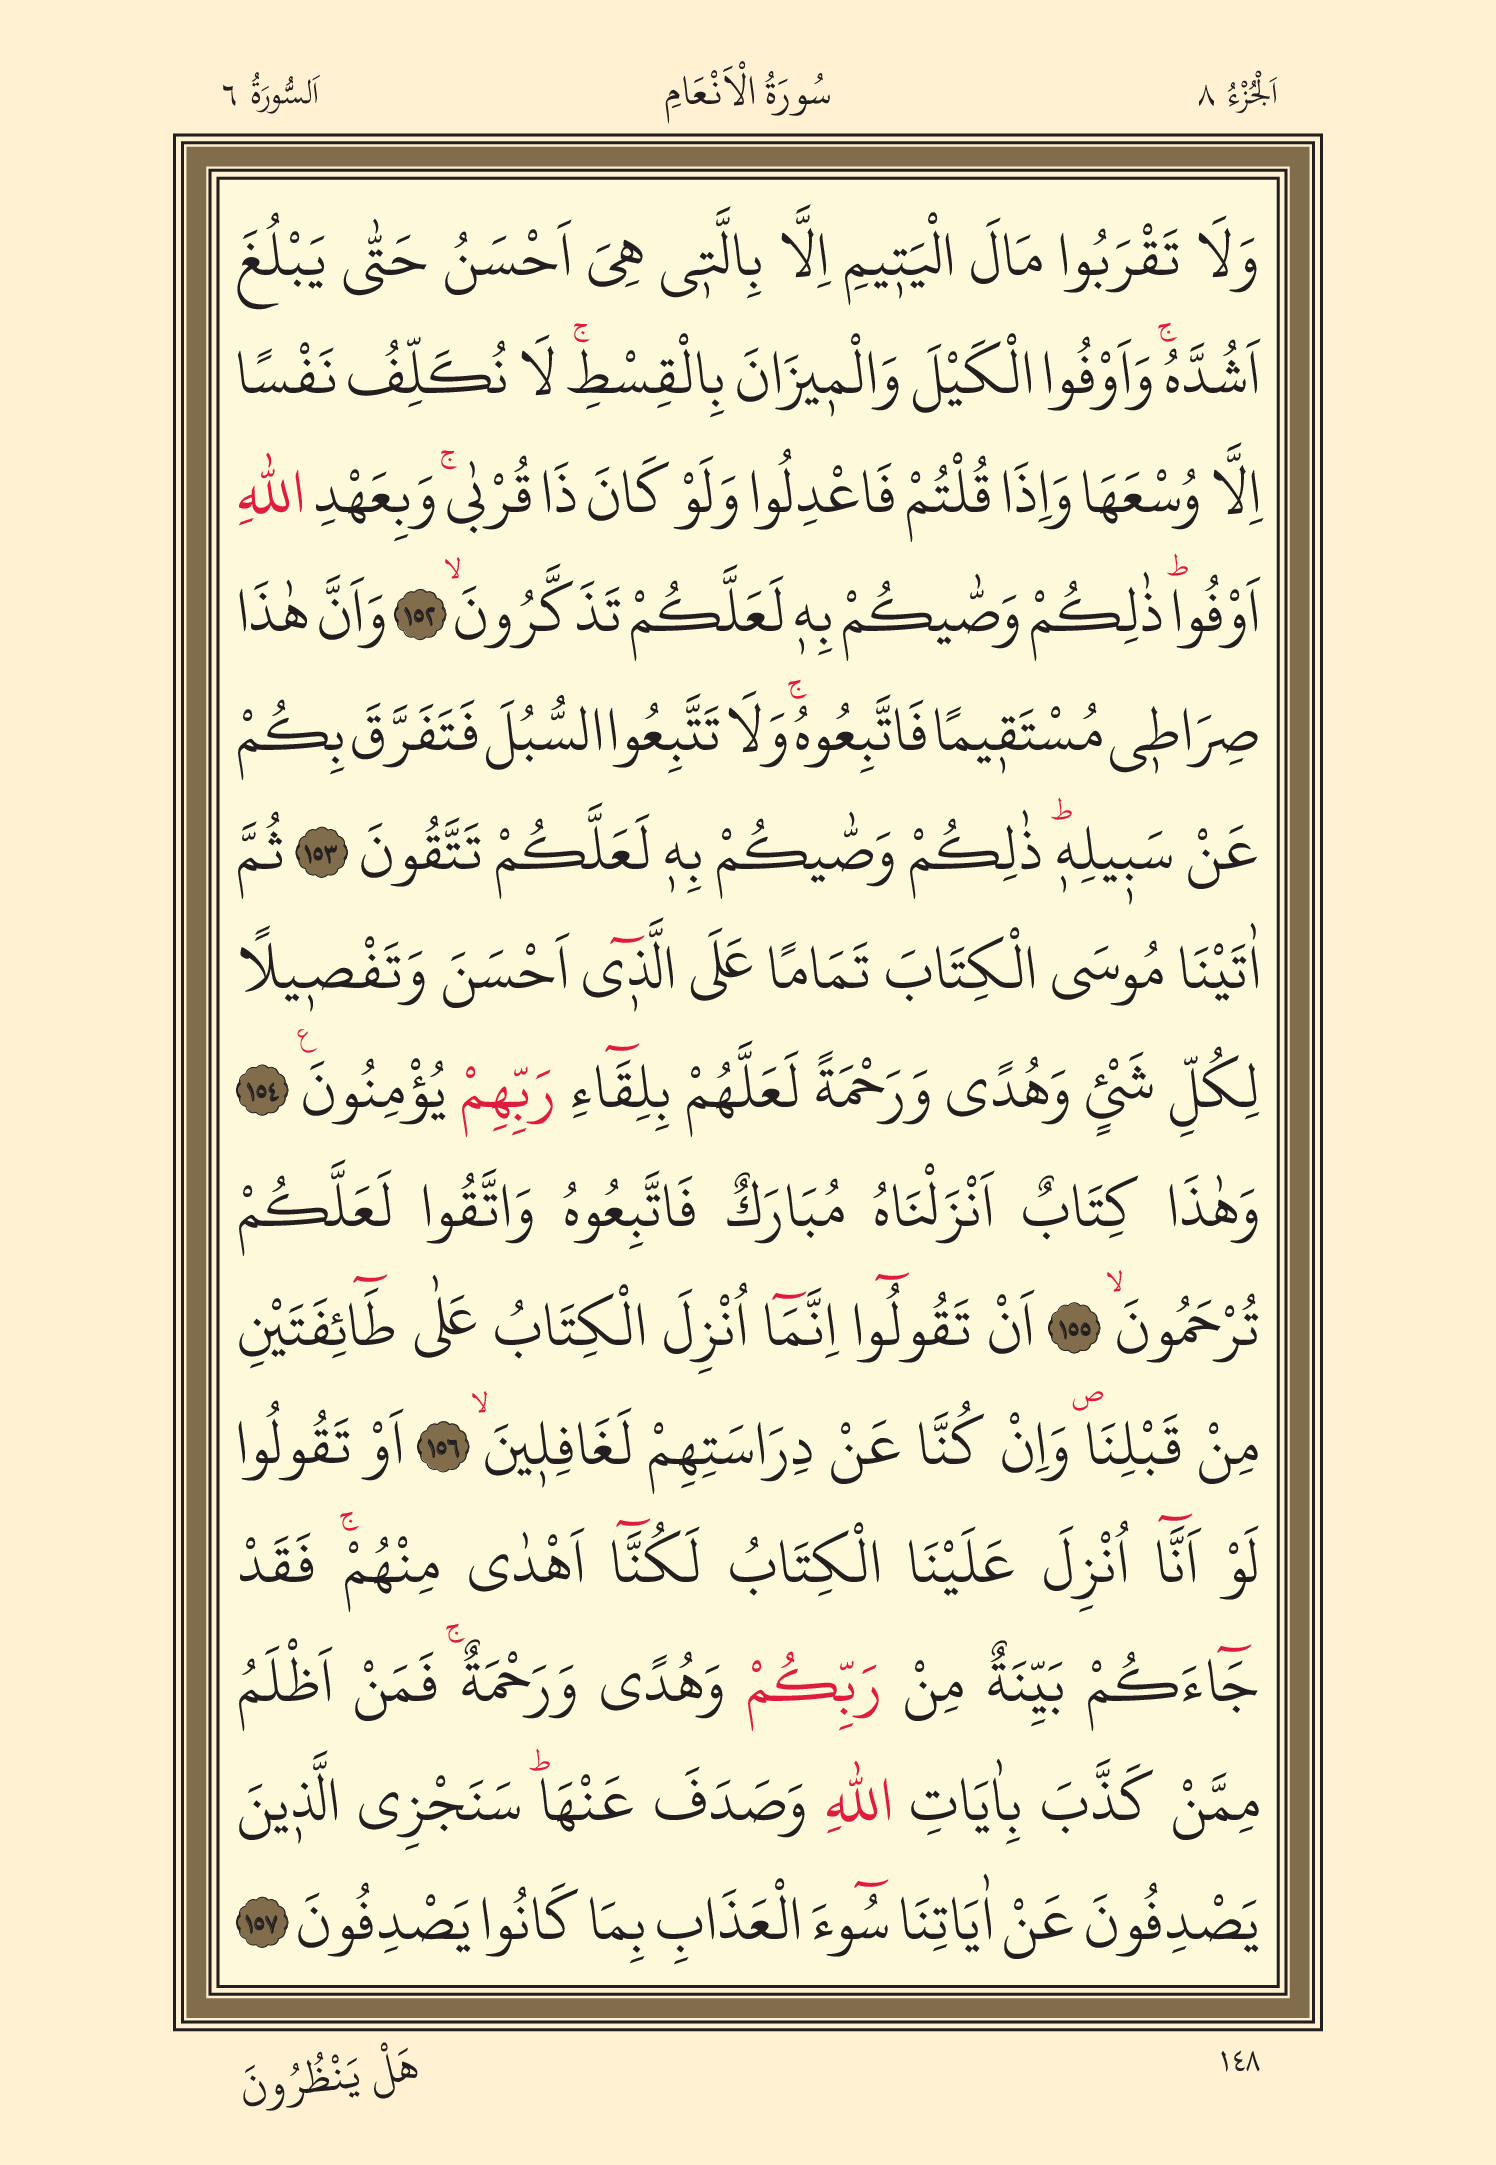 اَلْجُزْءُ ٨ سُورَةُ الْاَنْعَامِ اَلسُّورَةُ ٦
وَلَا تَقْرَبُوا مَالَ الْيَت۪يمِ اِلَّا بِالَّت۪ى هِىَ اَحْسَنُ حَتّٰى يَبْلُغَ
اَشُدَّهُۚ وَاَوْفُوا الْكَيْلَ وَالْم۪يزَانَ بِالْقِسْطِۚ لَا نُكَلِّفُ نَفْسًا
اِلَّا وُسْعَهَا وَاِذَا قُلْتُمْ فَاعْدِلُوا وَلَوْ كَانَ ذَا قُرْبٰىۚ وَبِعَهْدِ اللّٰهِ
اَوْفُواۜ ذٰلِكُمْ وَصّٰيكُمْ بِه۪ لَعَلَّكُمْ تَذَكَّرُونَۙ ١٥٢ وَاَنَّ هٰذَا
صِرَاط۪ى مُسْتَق۪يمًا فَاتَّبِعُوهُۚ وَلَا تَتَّبِعُوا السُّبُلَ فَتَفَرَّقَ بِكُمْ
عَنْ سَب۪يلِه۪ۜ ذٰلِكُمْ وَصّٰيكُمْ بِه۪ لَعَلَّكُمْ تَتَّقُونَ ١٥٣ ثُمَّ
اٰتَيْنَا مُوسَى الْكِتَابَ تَمَامًا عَلَى الَّذ۪ٓى اَحْسَنَ وَتَفْص۪يلًا
لِكُلِّ شَىْءٍ وَهُدًى وَرَحْمَةً لَعَلَّهُمْ بِلِقَٓاءِ رَبِّهِمْ يُؤْمِنُونَ۟ ١٥٤
وَهٰذَا كِتَابٌ اَنْزَلْنَاهُ مُبَارَكٌ فَاتَّبِعُوهُ وَاتَّقُوا لَعَلَّكُمْ
تُرْحَمُونَۙ ١٥٥ اَنْ تَقُولُٓوا اِنَّمَٓا اُنْزِلَ الْكِتَابُ عَلٰى طَٓائِفَتَيْنِ
مِنْ قَبْلِنَاۖ وَاِنْ كُنَّا عَنْ دِرَاسَتِهِمْ لَغَافِل۪ينَۙ ١٥٦ اَوْ تَقُولُوا
لَوْ اَنَّٓا اُنْزِلَ عَلَيْنَا الْكِتَابُ لَكُنَّٓا اَهْدٰى مِنْهُمْۚ فَقَدْ
جَٓاءَكُمْ بَيِّنَةٌ مِنْ رَبِّكُمْ وَهُدًى وَرَحْمَةٌۚ فَمَنْ اَظْلَمُ
مِمَّنْ كَذَّبَ بِاٰيَاتِ اللّٰهِ وَصَدَفَ عَنْهَاۜ سَنَجْزِى الَّذ۪ينَ
يَصْدِفُونَ عَنْ اٰيَاتِنَا سُٓوءَ الْعَذَابِ بِمَا كَانُوا يَصْدِفُونَ ١٥٧
١٤٨ هَلْ يَنْظُرُونَ